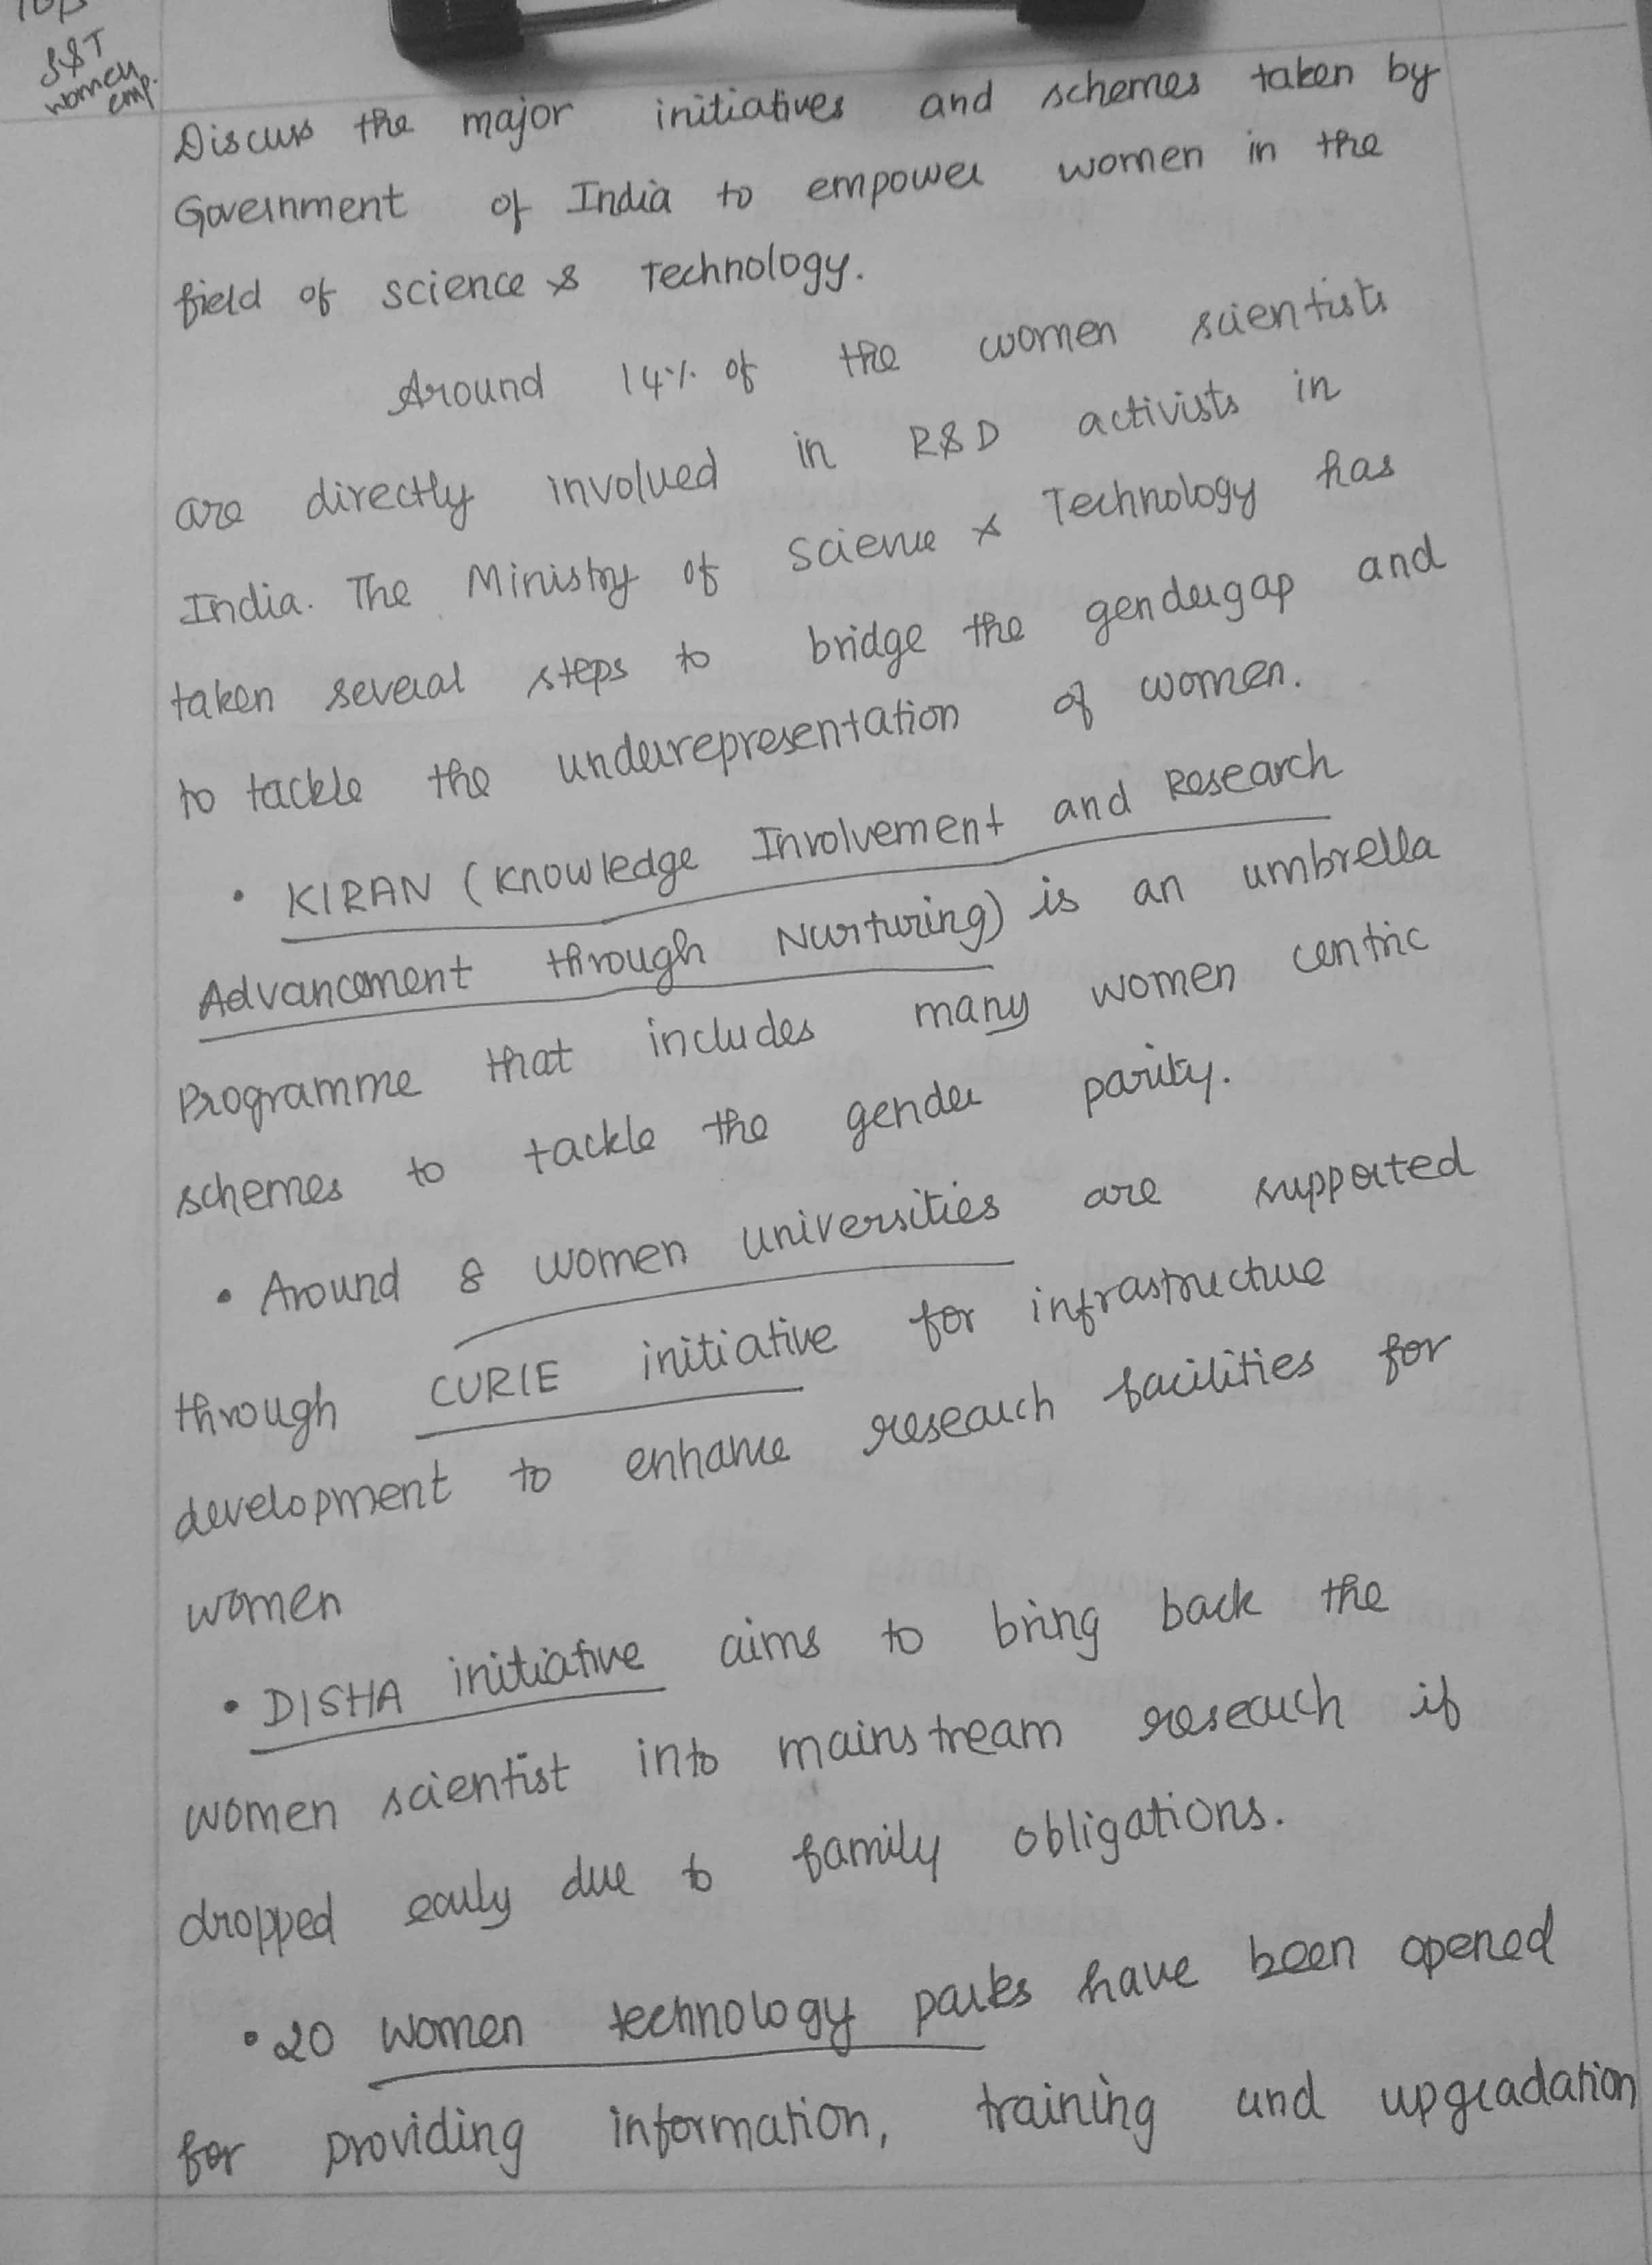 S&T
women
emp.
Discuss the major initiatives and schemes taken by
Government of India to empower women in the
field of science & Technology.
Around 14% of the women scientists
are directly involved in R&D activists in
India. The Ministry of Science & Technology has
taken several steps to bridge the gendergap and
to tackle the underrepresentation of women.
• KIRAN (Knowledge Involvement and Research
Advancement through Nurturing) is an umbrella
Programme that includes many women centric
schemes to tackle the gender parity.
• Around 8 women universities are supported
through CURIE initiative for infrastructure
development to enhance research facilities for
women
• DISHA initiative aims to bring back the
women scientist into mainstream research if
dropped early due to family obligations.
• 20 women technology parks have been opened
for providing information, training and upgradation